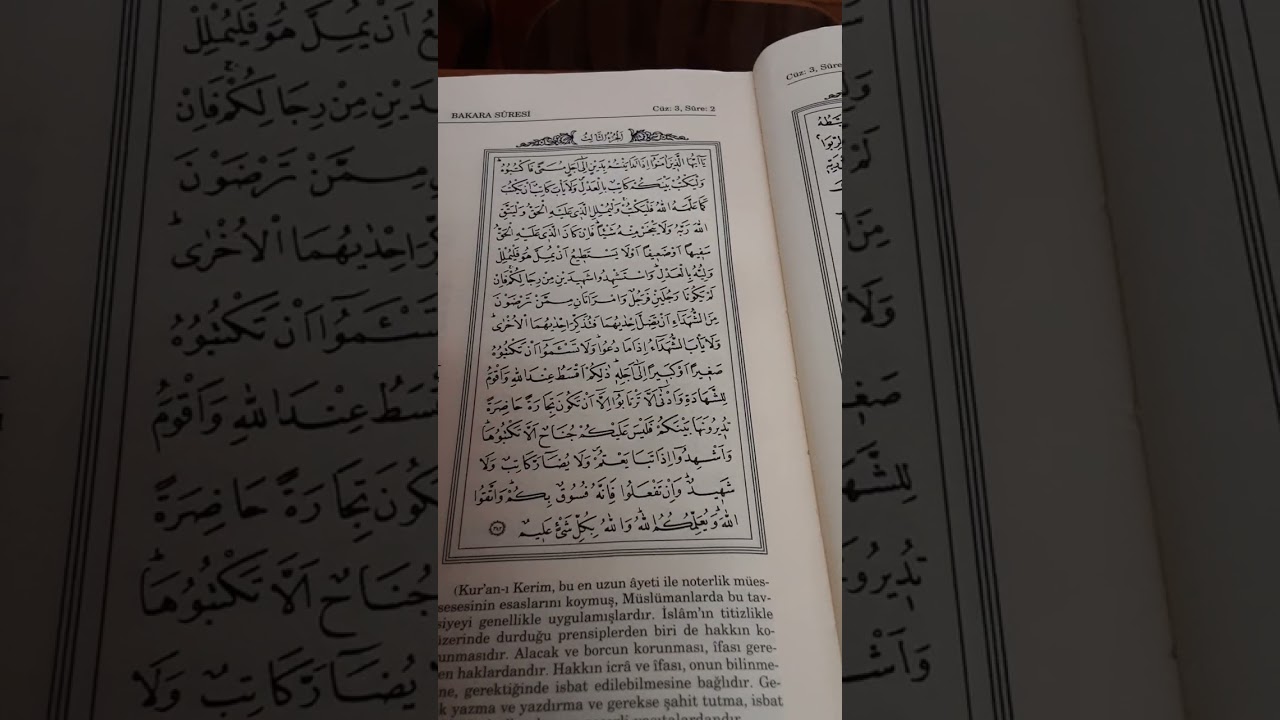 BAKARA SÛRESİ
Cüz: 3, Sûre: 2
الجزء الثالث
يَٓا اَيُّهَا الَّذ۪ينَ اٰمَنُٓوا اِذَا تَدَايَنْتُمْ بِدَيْنٍ اِلٰٓى اَجَلٍ مُسَمًّى فَاكْتُبُوهُۜ
وَلْيَكْتُبْ بَيْنَكُمْ كَاتِبٌ بِالْعَدْلِۖ وَلَا يَأْبَ كَاتِبٌ اَنْ يَكْتُبَ
كَمَا عَلَّمَهُ اللّٰهُ فَلْيَكْتُبْۚ وَلْيُمْلِلِ الَّذ۪ي عَلَيْهِ الْحَقُّ وَلْيَتَّقِ
اللّٰهَ رَبَّهُ وَلَا يَبْخَسْ مِنْهُ شَيْـًٔاۜ فَاِنْ كَانَ الَّذ۪ي عَلَيْهِ الْحَقُّ
سَف۪يهًا اَوْ ضَع۪يفًا اَوْ لَا يَسْتَط۪يعُ اَنْ يُمِلَّ هُوَ فَلْيُمْلِلْ
وَلِيُّهُ بِالْعَدْلِۜ وَاسْتَشْهِدُوا شَه۪يدَيْنِ مِنْ رِجَالِكُمْۚ فَاِنْ
لَمْ يَكُونَا رَجُلَيْنِ فَرَجُلٌ وَامْرَاَتَانِ مِمَّنْ تَرْضَوْنَ
مِنَ الشُّهَدَٓاءِ اَنْ تَضِلَّ اِحْدٰيهُمَا فَتُذَكِّرَ اِحْدٰيهُمَا الْاُخْرٰىۜ
وَلَا يَأْبَ الشُّهَدَٓاءُ اِذَا مَا دُعُواۜ وَلَا تَسْـَٔمُٓوا اَنْ تَكْتُبُوهُ
صَغ۪يرًا اَوْ كَب۪يرًا اِلٰٓى اَجَلِه۪ۜ ذٰلِكُمْ اَقْسَطُ عِنْدَ اللّٰهِ وَاَقْوَمُ
لِلشَّهَادَةِ وَاَدْنٰٓى اَلَّا تَرْتَابُٓوا اِلَّٓا اَنْ تَكُونَ تِجَارَةً حَاضِرَةً
تُد۪يرُونَهَا بَيْنَكُمْ فَلَيْسَ عَلَيْكُمْ جُنَاحٌ اَلَّا تَكْتُبُوهَاۜ
وَاَشْهِدُٓوا اِذَا تَبَايَعْتُمْۖ وَلَا يُضَٓارَّ كَاتِبٌ وَلَا
شَه۪يدٌۜ وَاِنْ تَفْعَلُوا فَاِنَّهُ فُسُوقٌ بِكُمْۜ وَاتَّقُوا
اللّٰهَۜ وَيُعَلِّمُكُمُ اللّٰهُۜ وَاللّٰهُ بِكُلِّ شَيْءٍ عَل۪يمٌ ﴿٢٨٢﴾
(Kur'an-ı Kerim, bu en uzun âyeti ile noterlik mües-
sesesinin esaslarını koymuş, Müslümanlarda bu tav-
siyeyi genellikle uygulamışlardır. İslâm'ın titizlikle
üzerinde durduğu prensiplerden biri de hakkın ko-
unmasıdır. Alacak ve borcun korunması, îfası gere-
en haklardandır. Hakkın icrâ ve îfası, onun bilinme-
ne, gerektiğinde isbat edilebilmesine bağlıdır. Ge-
k yazma ve yazdırma ve gerekse şahit tutma, isbat
Cüz: 3, Sûre